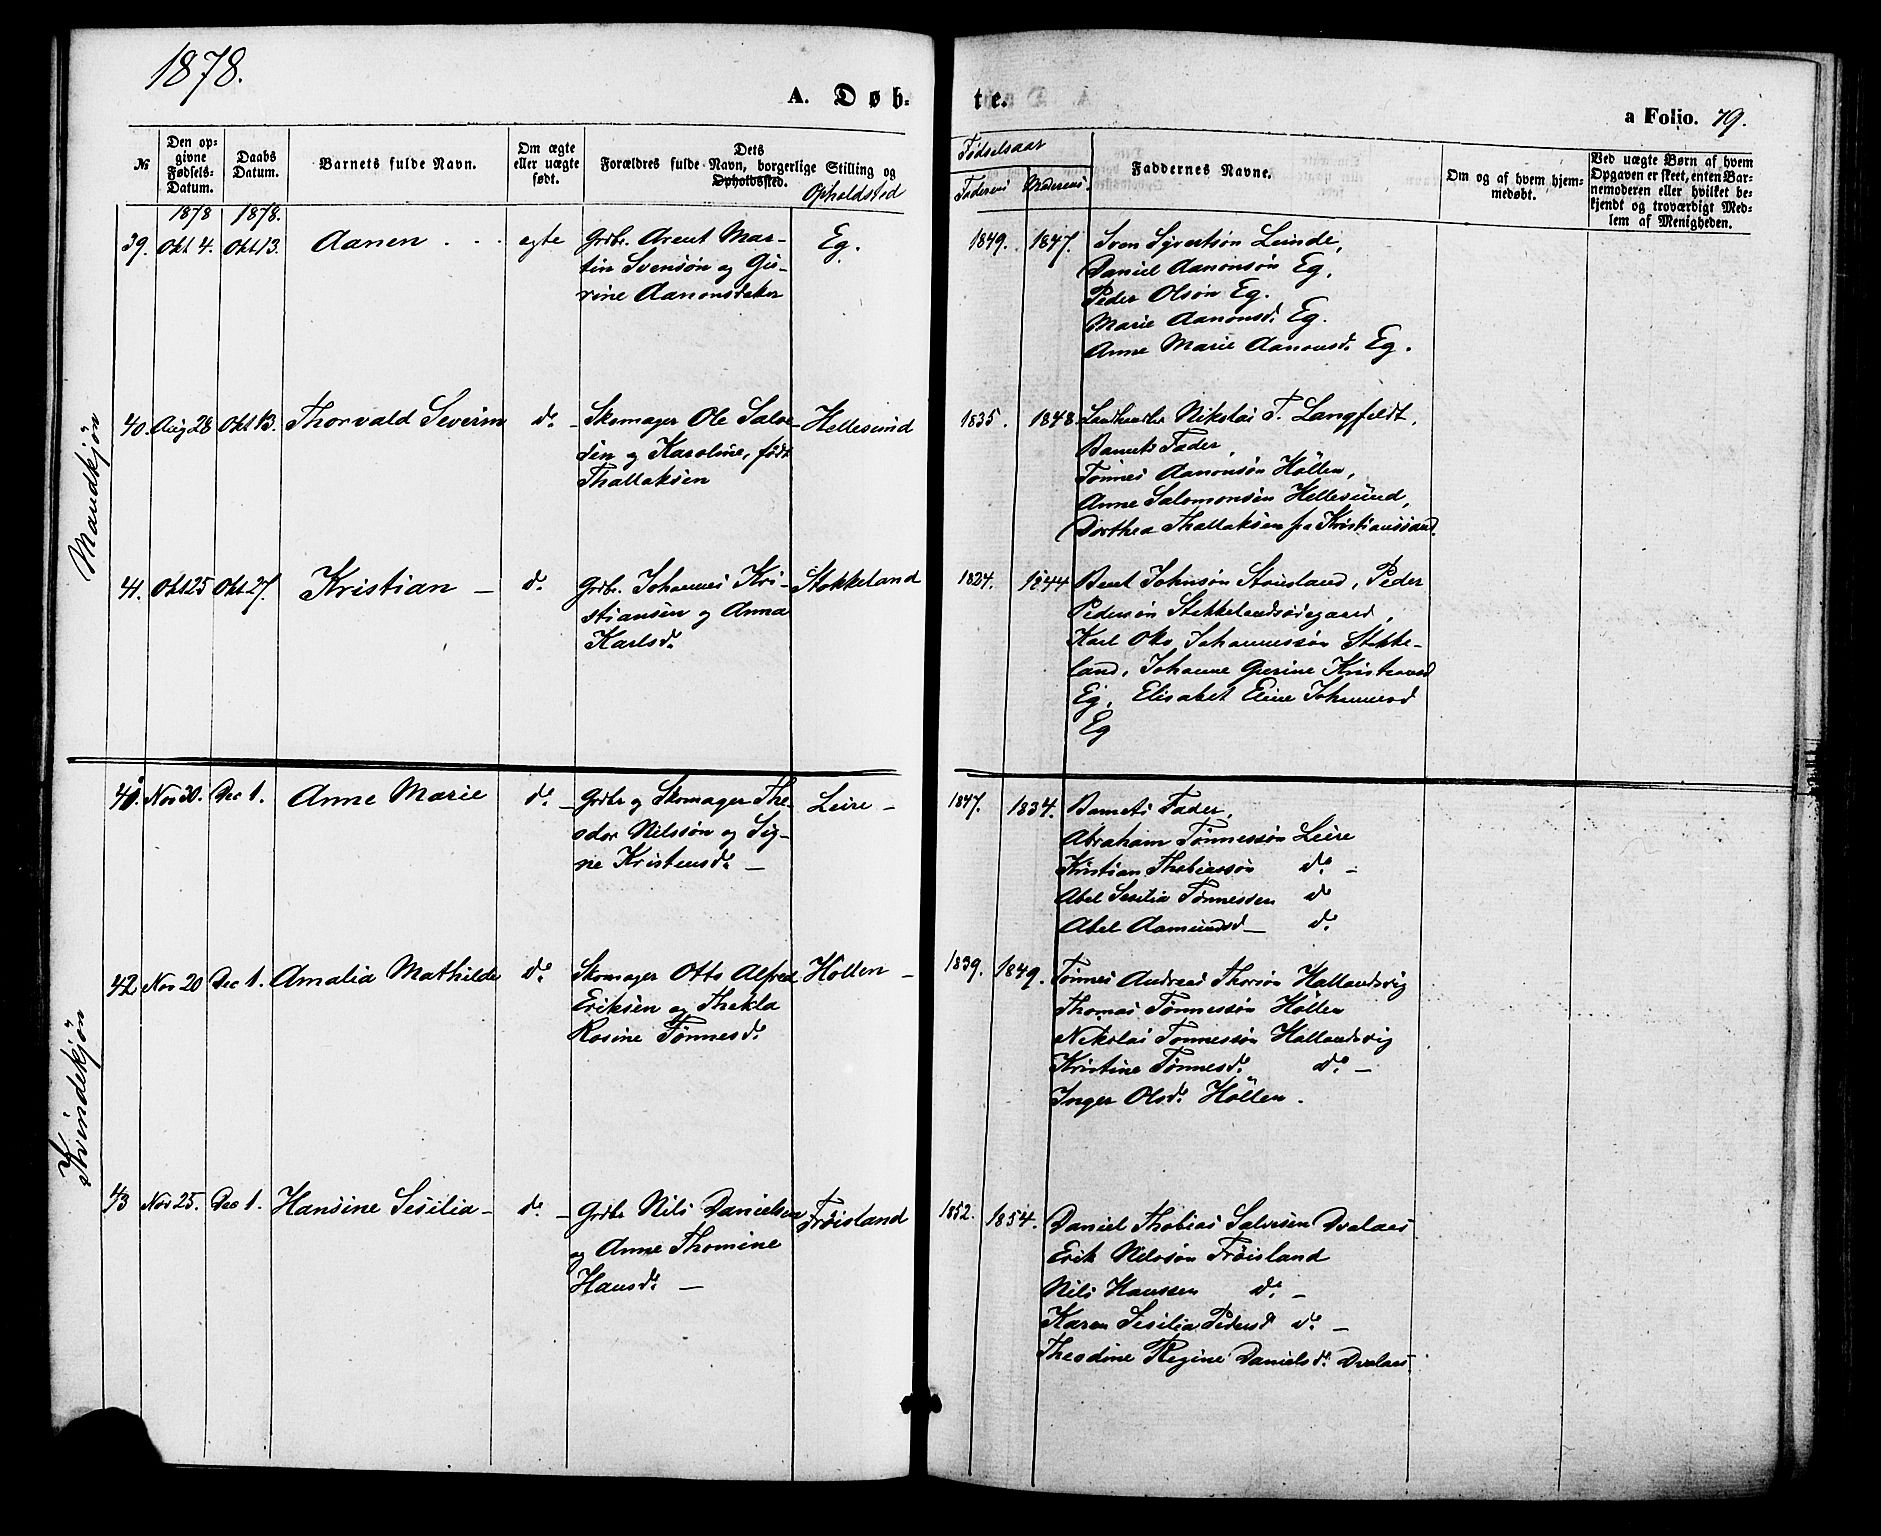 1878.
A. Døb-
te.
a Folio. 79.
№
Den op-
givne
Fødsels-
Datum.
Daabs
Datum.
Barnets fulde Navn.
Om ægte
eller uægte
født.
Dets
Forældres fulde Navn, borgerlige Stilling og
Opholdssted.
Opholdsted
Fødselsaar
Faderens Moderens
Faddernes Navne.
Om og af hvem hjem-
medøbt.
Ved uægte Børn af hvem
Opgaven er skeet, enten Bar-
nemoderen eller hvilket be-
kjendt og troværdigt Med-
lem af Menigheden.
Mandkjön
1878 1878.
39. Okt 4. Okt 13. Aanen . . . egte
Grdbr. Arent Mar-
tin Svensøn og Gu-
rine Aanonsdatter
Eg.
1849. 1847.
Sven Syvertsøn Leinde,
Daniel Aanonsøn Eg,
Peder Olsøn Eg.
Marie Aanonsd. Eg.
Anne Marie Aanonsd. Eg.
40. Aug 28 Okt 13. Thorvald Severin do
Skomager Ole Salve-
sen og Karoline, født
Thallaksen
Hellesund
1835. 1848.
Landhandler Nikolai T. Langfeldt,
Barnets Fader,
Tønnes Aanonsøn Höllen,
Anne Salomonsen Hellesund,
Dorthea Thallaksen fra Kristianssand.
41. Okt 25 Okt 27. Kristian — do
Grdbr. Johannes Kri-
stiansen og Anna
Karlsd.
Stokkeland
1824. 1844
Bent Johnsøn Stousland, Peder
Pedersøn Stokkelandsødegaard,
Karl Johannessøn Stokke-
land, Johanne Gurine Kristiansd
Eg, Elisabet Johannesd
Eg
Kvindekjön
41. Nov 30. Dec 1. Anne Marie do
Grdbr og Skomager The-
odor Nilssøn og Sig-
ne Kristensd. —
Leire —
1847. 1834.
Barnets Fader,
Abraham Tönnessøn Leire
Kristian Thobiassøn do —
Abel Sesilia Tønnessen do
Abel Aamundsd — do
42 Nov 20 Dec 1. Amalia Mathilde do
Skomager Otto Alfred
Eriksen og Thekla
Rosine Tønnesd.
Höllen —
1839. 1849.
Tønnes Andreas Thorsøn Hallandsvig
Thomas Tønnessøn Höllen
Nikolai Tønnessøn Hallandsvig
Kristine Tønnesd. do —
Inger Olsd. Höllen .
43 Nov 25. Dec 1. Hansine Sesilia — do
Grdbr Nils Danielsen
og Anne Thomine
Hansd. —
Frøisland
1852. 1854.
Daniel Thobias Salvesen Dvalaes
Erik Nilssøn Frøisland
Nils Hanssen do —
Karen Sesilia Pedersd do —
Theodine Regine Danielsd. Dvalaes.